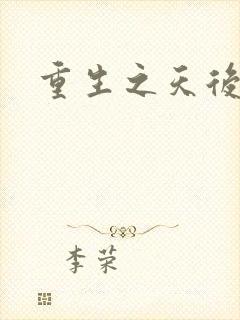 重生之天後
李荣